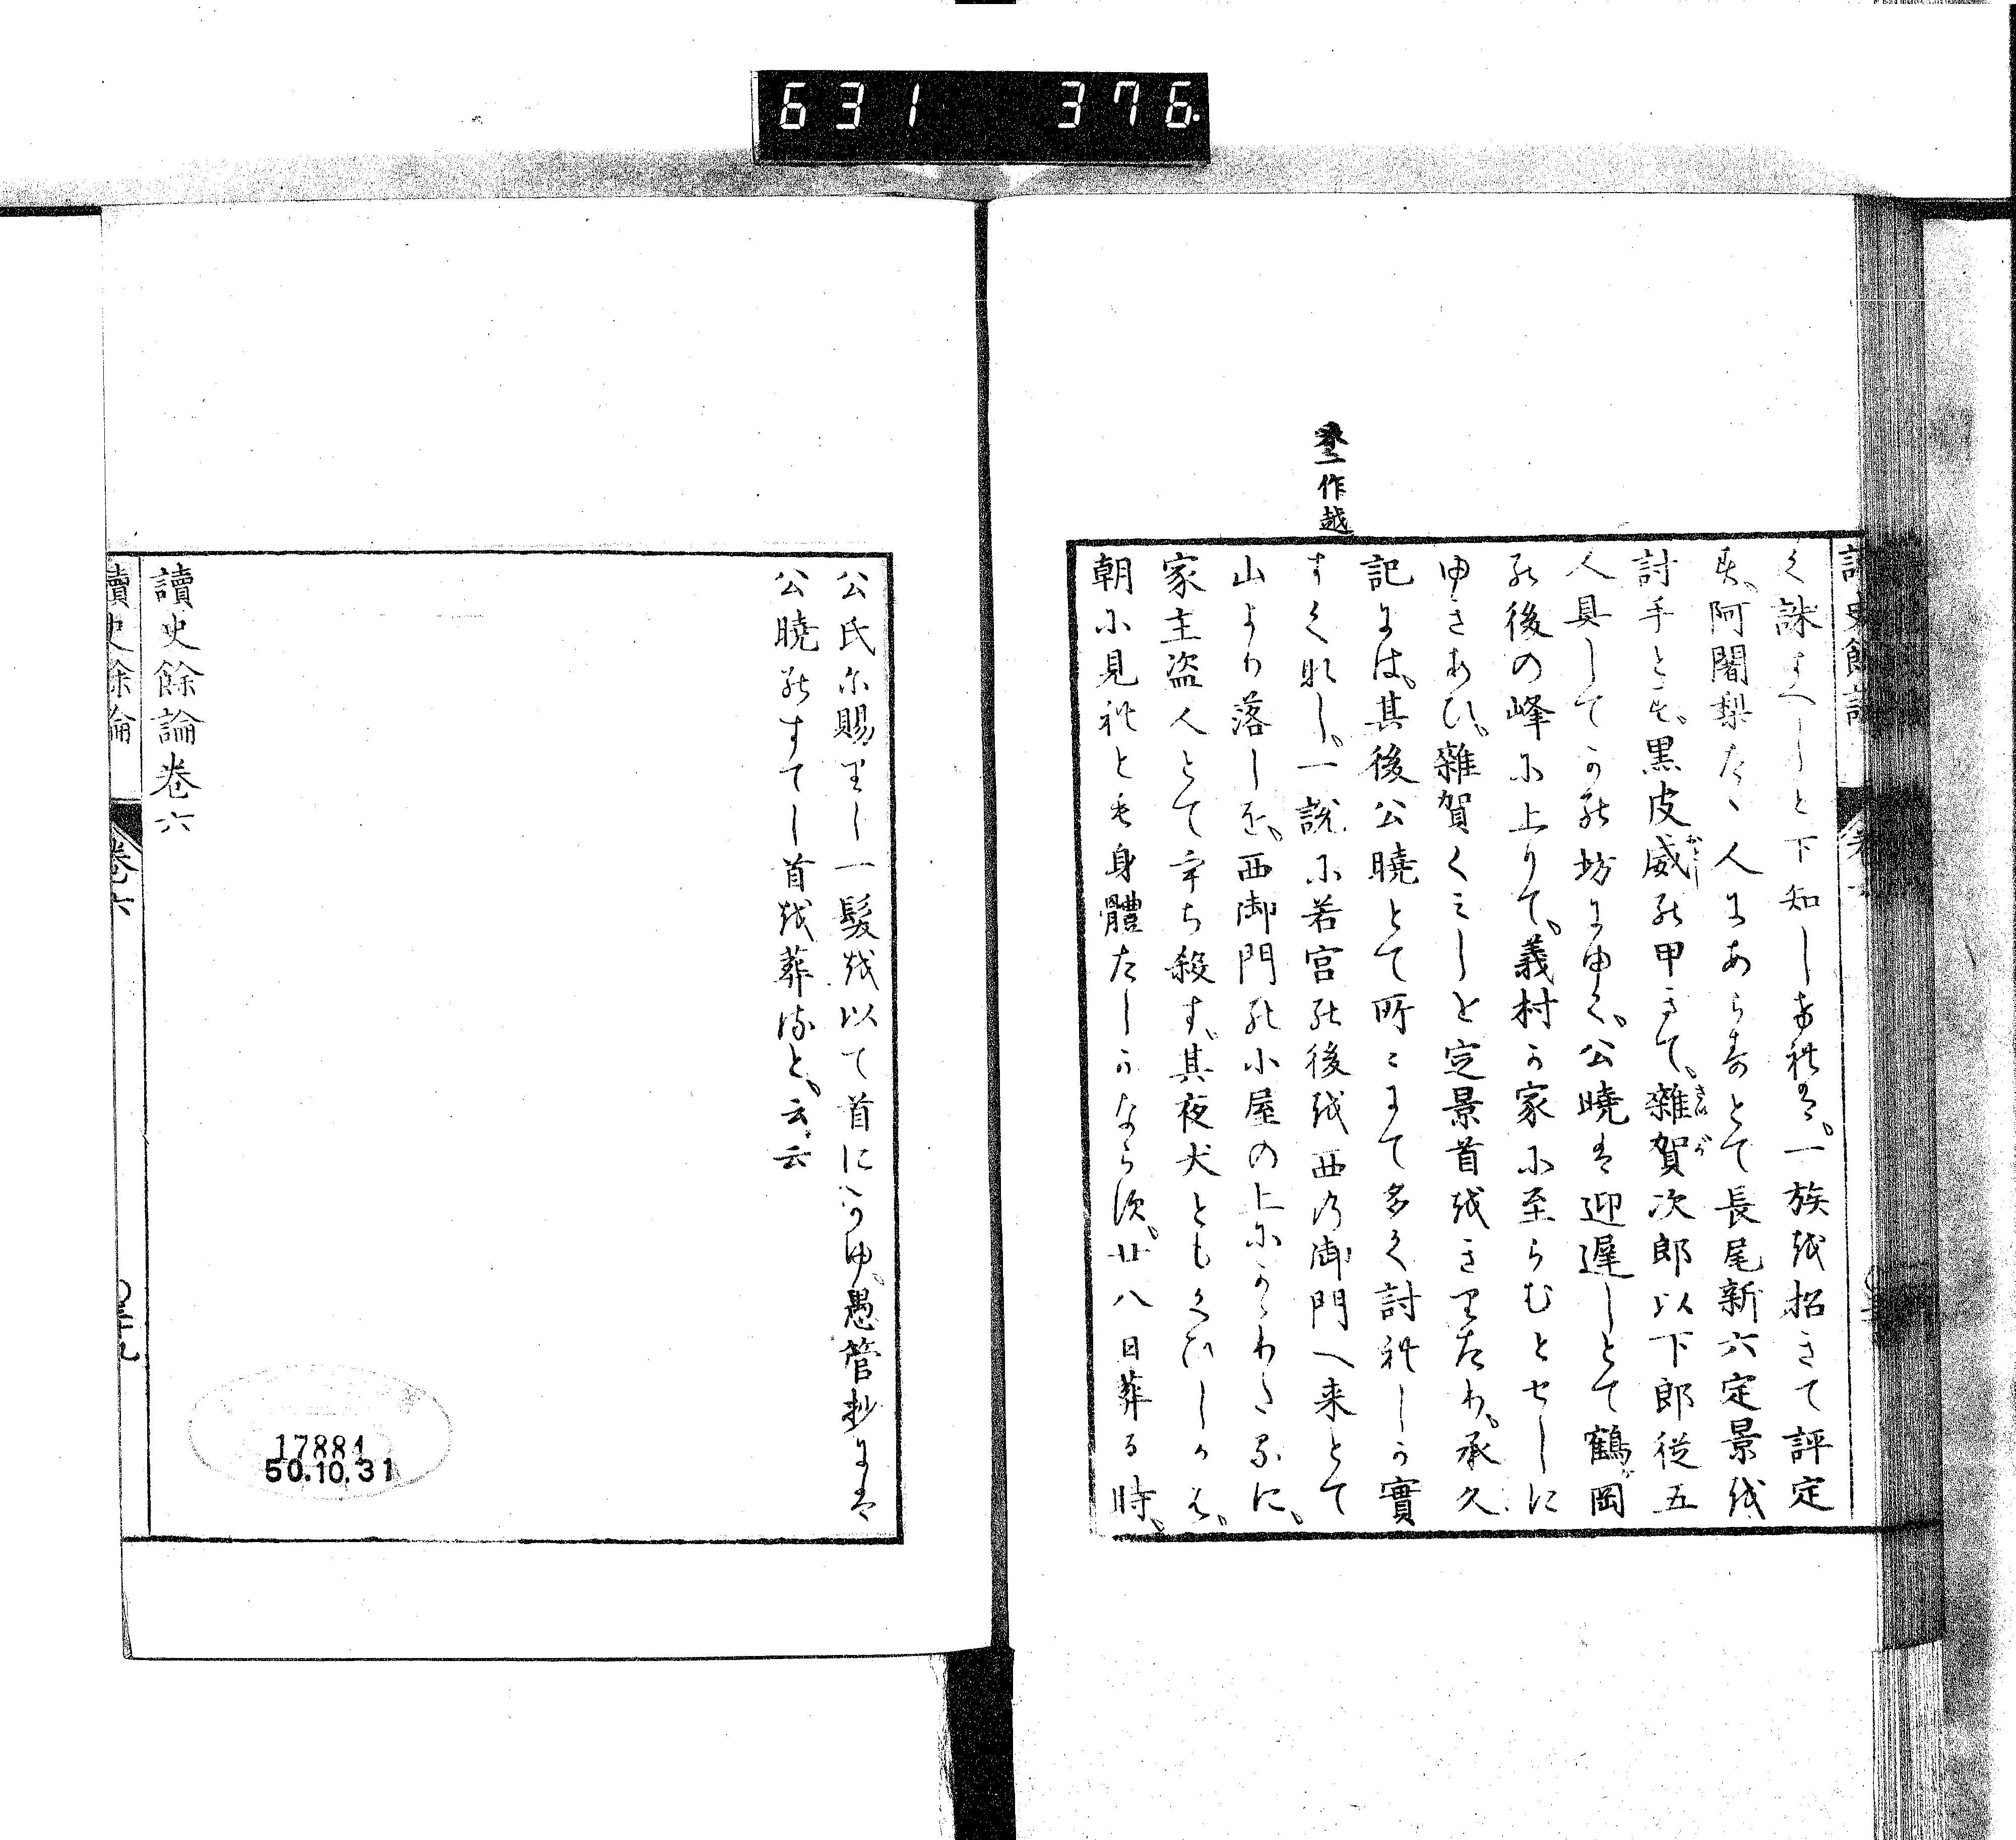 631 376
く誅すへしと下知しけれは。一族を招きて評定
す。阿闍梨たゝ人にあらすとて長尾新六定景を
討手とす。黒皮威の甲きて。雜賀次郎以下郎從五
人具してかの坊にゆく。公曉は迎遲しとて鶴岡
の後の峰に上りて。義村か家に至らむとせしに
ゆきあひ。雜賀くみしと定景首をきりたり。承久
記には。其後公曉とて所々にて多く討れしか實
すくなし。一說に若宮の後を西の御門へ来とて
山より落しを。西御門の小屋の上にかゝりたるに。
家主盗人とて
ち殺す。其夜犬ともくひしかは。
朝に見れとも身體たしかならす。廿八日葬る時。
一作越
公氏に賜りし一髮を以て首にかゆ。愚管抄には
公曉のすてし首を葬ると。云云
讀史餘論卷六
讀史餘論
卷六
17884
50.10.31